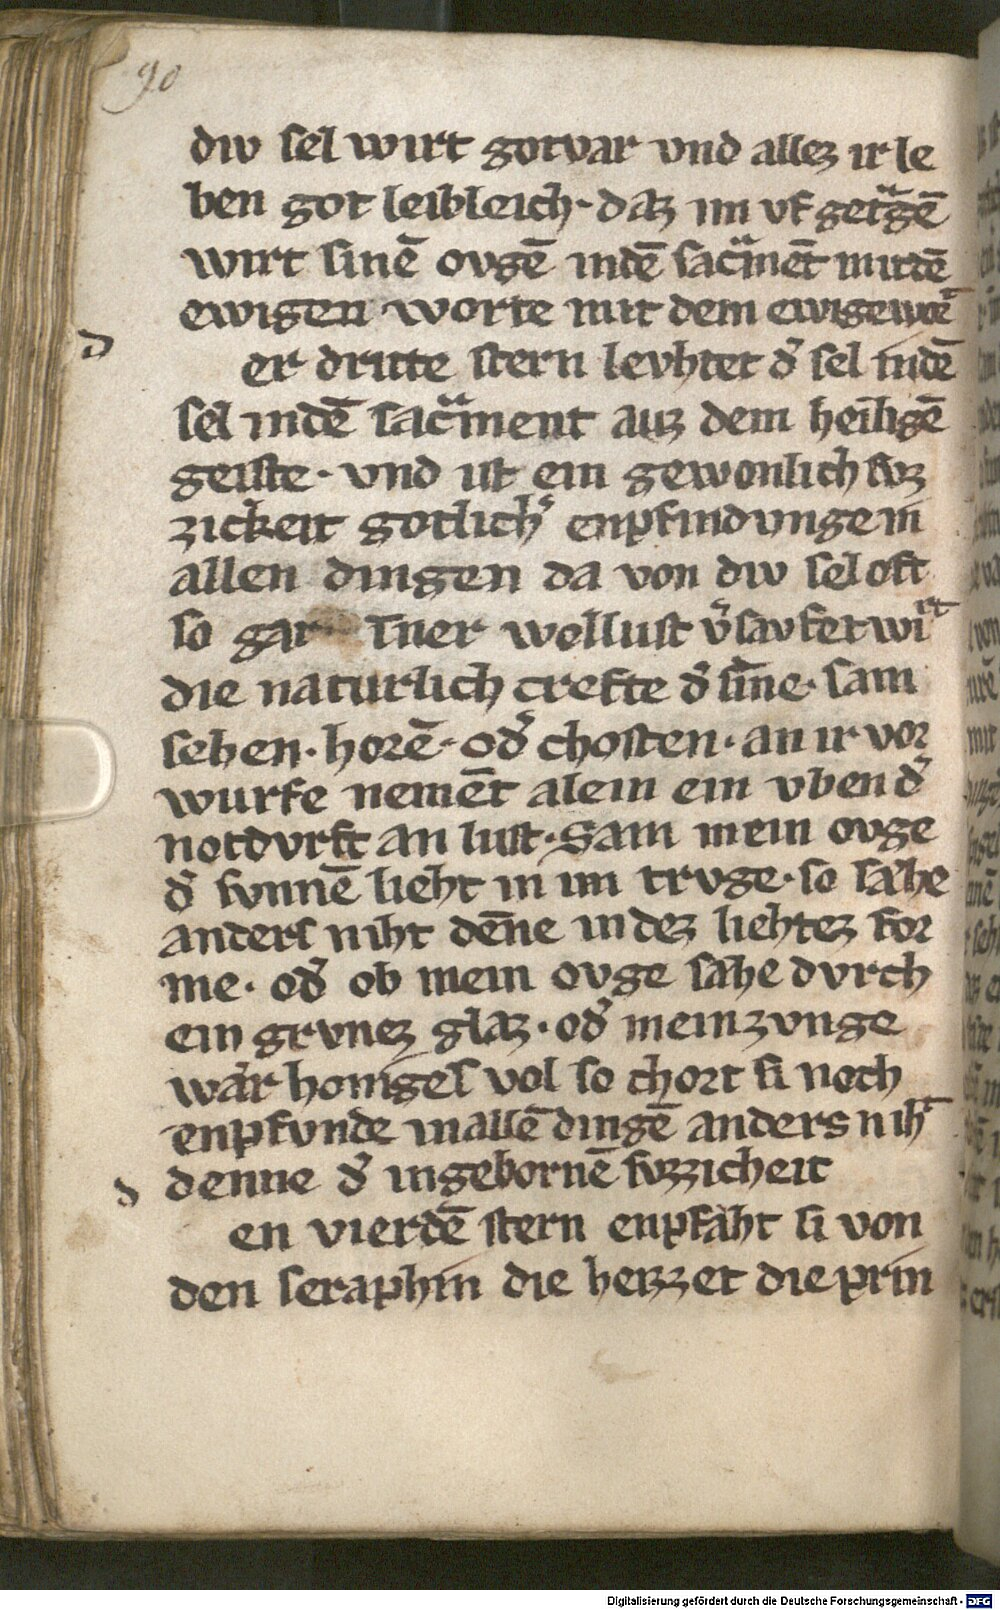 90
diw sel wirt gotvar vnd allez ir le
ben got leibleich · daz im vf getͣgē
wirt sinē ovgē indē sacͣmēt mitdē
ewigen worte mit dem ewigē
d
er dritte stern levhtet d̾ sel indē
sel indē sacͣment auz dem heiligē
geiste · vnd ist ein gewonlich svz
zickeit gotlich̾ enpfindvnge in
allen dingen da von diw sel oft
so gar īner wollust v̾savfet wirt
die naturlich crefte d̾ sīne · sam
sehen · horē · od̾ chosten · an ir vor
wurfe nemēt alein ein vben d̾
notdvrft an lust · Sam mein ovge
d̾ svnnē lieht in im trvge · so sähe
anders niht dēne indez liehtez for
me · od̾ ob mein ovge sähe dvrch
ein grvnez glaz · od̾ mein zvnge
wär honiges vol so chort si noch
enpfvnde inallē dingē anders niht
d
denne d̾ ingebornē svzzicheit
en vierdē stern enpfäht si von
den seraphin die heizzet die prin
Digitalisierung gefördert durch die Deutsche Forschungsgemeinschaft - DFG